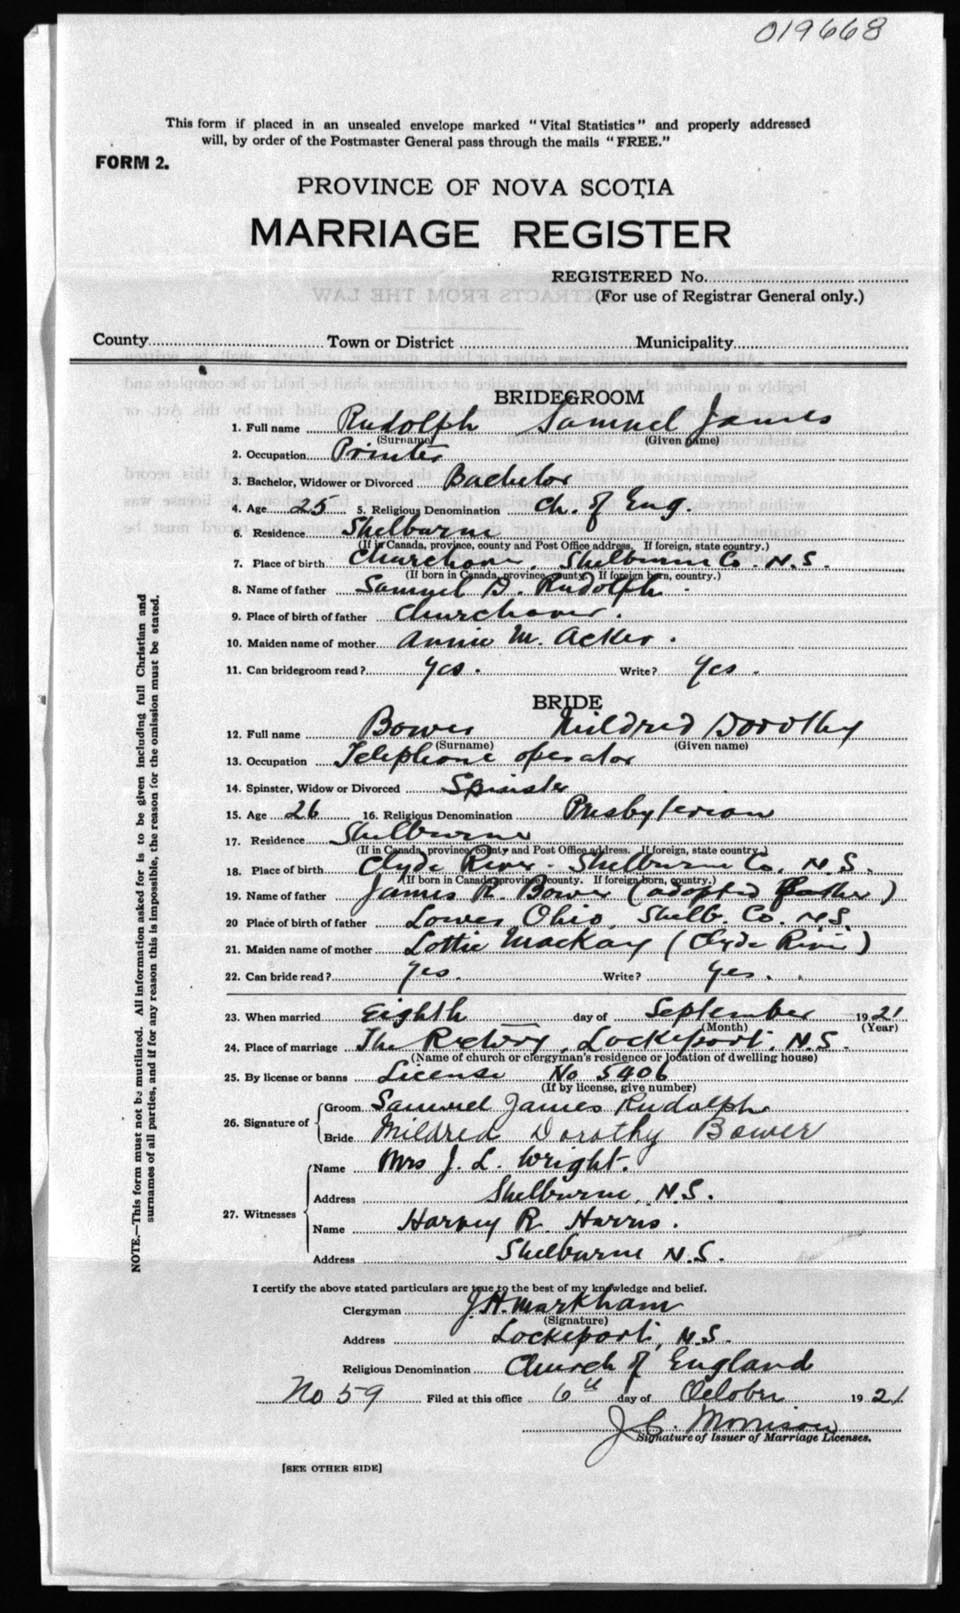 019668
This form if placed in an unsealed envelope marked "Vital Statistics" and properly addressed
will, by order of the Postmaster General pass through the mails "FREE."
FORM 2.
PROVINCE OF NOVA SCOTIA
MARRIAGE REGISTER
REGISTERED No.
(For use of Registrar General only.)
County Town or District Municipality
BRIDEGROOM
1. Full name Rudolph Samuel James
(Surname) (Given name)
2. Occupation Printer
3. Bachelor, Widower or Divorced Bachelor
4. Age 25 5. Religious Denomination Ch. of Eng.
6. Residence Shelburne
(If in Canada, province, county and Post Office address. If foreign, state country.)
7. Place of birth Churchover, Shelburne Co. N.S.
(If born in Canada, province, county. If foreign born, country.)
8. Name of father Samuel D. Rudolph.
9. Place of birth of father Churchover.
10. Maiden name of mother Annie M. Acker.
11. Can bridegroom read? Yes. Write? Yes.
BRIDE
12. Full name Bower Mildred Dorothy
(Surname) (Given name)
13. Occupation Telephone operator
14. Spinster, Widow or Divorced Spinster
15. Age 26 16. Religious Denomination Presbyterian
17. Residence Shelburne
(If in Canada, province, county and Post Office address. If foreign, state country.)
18. Place of birth Clyde River. Shelburne Co. N.S.
(If born in Canada, province, county. If foreign born, country.)
19. Name of father James R. Bower (adopted father)
20 Place of birth of father Lower Ohio, Shelb. Co. N.S.
21. Maiden name of mother Lottie Mackay (Clyde River)
22. Can bride read? Yes. Write? Yes.
23. When married Eighth day of September 1921
(Month) (Year)
24. Place of marriage The Rectory, Lockeport. N.S.
(Name of church or clergyman's residence or location of dwelling house)
25. By license or banns License No 5406
(If by license, give number)
26. Signature of Groom Samuel James Rudolph
Bride Mildred Dorothy Bower
27. Witnesses Name Mrs J. L. Wright.
Address Shelburne, N.S.
Name Harvey R. Harris.
Address Shelburne N.S.
I certify the above stated particulars are true to the best of my knowledge and belief.
Clergyman J. H. Markham
(Signature)
Address Lockeport, N.S.
Religious Denomination Church of England
No 59 Filed at this office 6th day of October 1921
J. C. Morrison
Signature of Issuer of Marriage Licenses.
[SEE OTHER SIDE]
NOTE.—This form must not be mutilated. All information asked for is to be given including full Christian and
surnames of all parties, and if for any reason this is impossible, the reason for the omission must be stated.